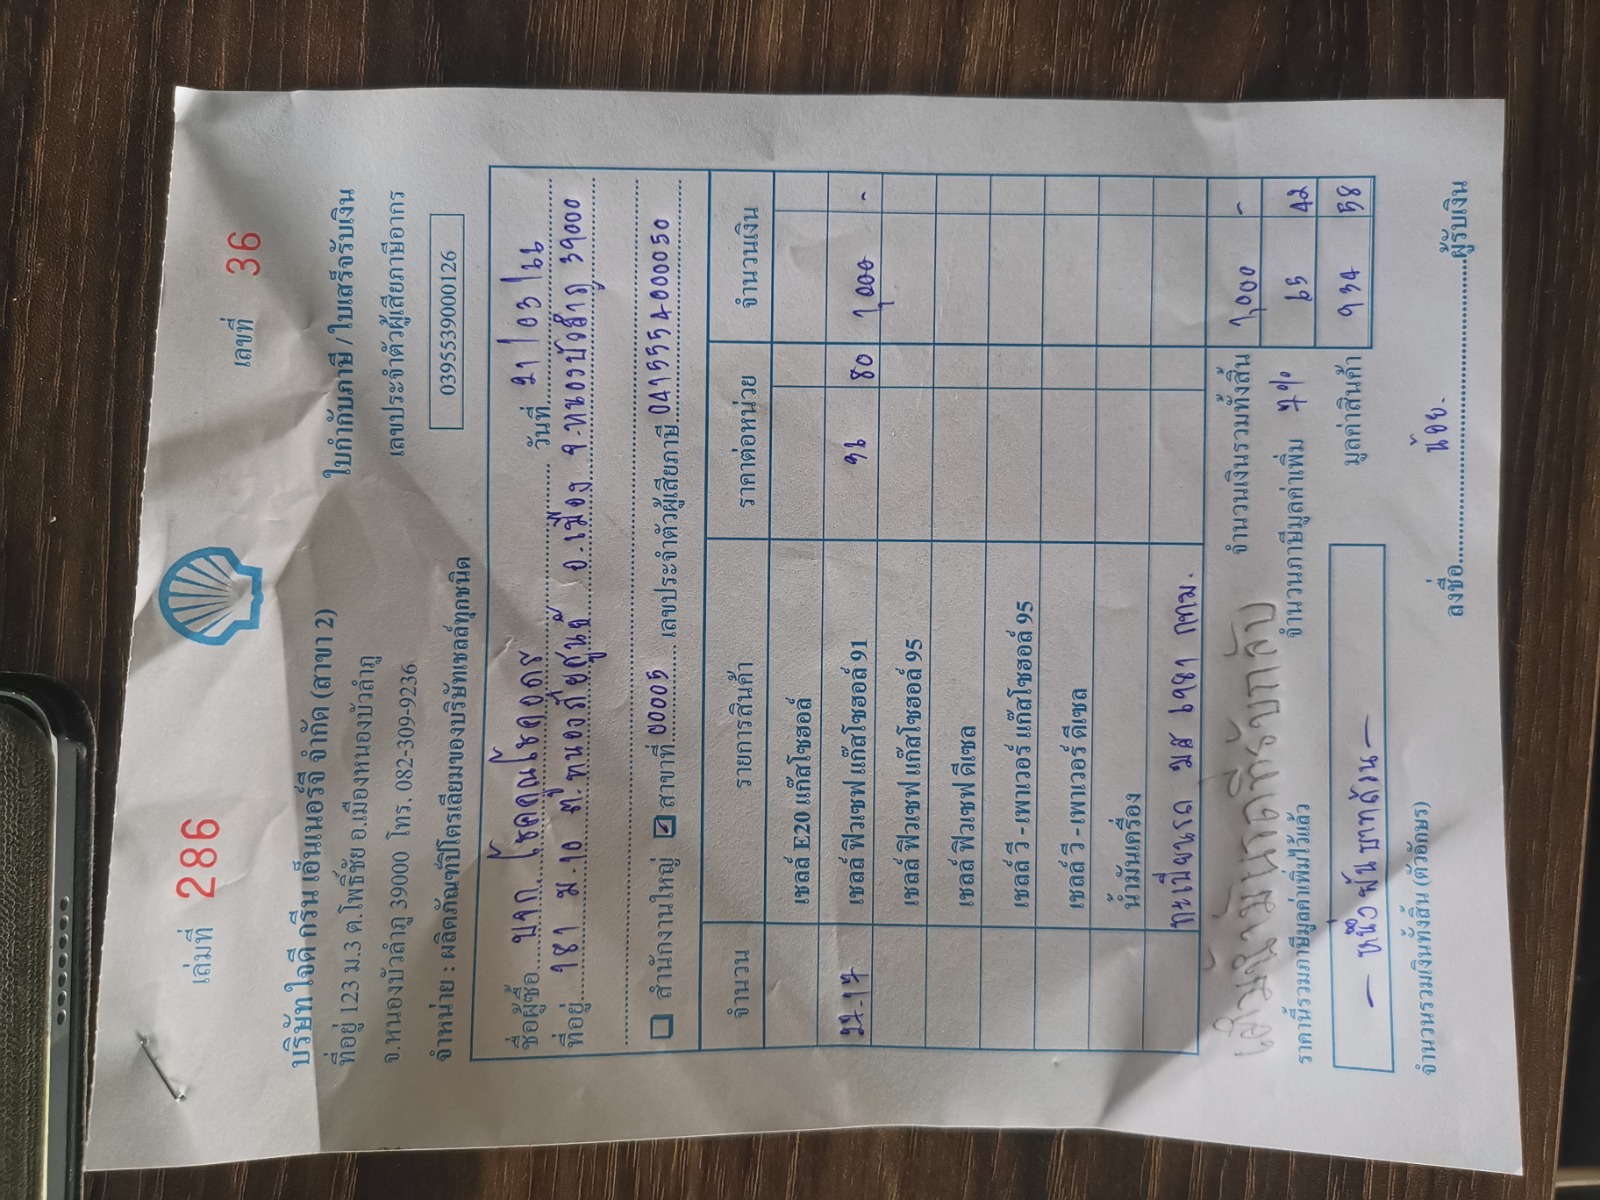 เล่มที่ 286 เลขที่ 36
บริษัท ใจดี กรีน เอ็นเนอร์จี จำกัด (สาขา 2)
ใบกำกับภาษี / ใบเสร็จรับเงิน
ที่อยู่ 123 ม.3 ต.โพธิ์ชัย อ.เมืองหนองบัวลำภู
เลขประจำตัวผู้เสียภาษีอากร
จ.หนองบัวลำภู 39000 โทร. 082-309-9236
0395539000126
จำหน่าย : ผลิตภัณฑ์ปิโตรเลียมของบริษัทเชลล์ทุกชนิด
ชื่อผู้ซื้อ บจก โชคคูณโชคอุดร วันที่ 21/03/66
ที่อยู่ 181 ม.10 ต.หนองภัยศูนย์ อ.เมือง จ.หนองบัวลำภู 39000
สำนักงานใหญ่ สาขาที่ 00005 เลขประจำตัวผู้เสียภาษี 0415554000050
จำนวน รายการสินค้า ราคาต่อหน่วย จำนวนเงิน
เชลล์ E20 แก๊สโซฮอล์
27.17 เชลล์ ฟิวเซฟ แก๊สโซฮอล์ 91 36 80 1,000 -
เชลล์ ฟิวเซฟ แก๊สโซฮอล์ 95
เชลล์ ฟิวเซฟ ดีเซล
เชลล์ วี - เพาเวอร์ แก๊สโซฮอล์ 95
เชลล์ วี - เพาเวอร์ ดีเซล
น้ำมันเครื่อง
ทะเบียนรถ 6981 กทม.
เติมน้ำมันรถที่รับกลับ จำนวนเงินรวมทั้งสิ้น 1,000 -
ราคานี้รวมภาษีมูลค่าเพิ่มไว้แล้ว จำนวนภาษีมูลค่าเพิ่ม 7% 65 42
— หนึ่งพันบาทถ้วน — มูลค่าสินค้า 934 58
จำนวนรวมเงินทั้งสิ้น (ตัวอักษร) ลงชื่อ น้อย. ผู้รับเงิน